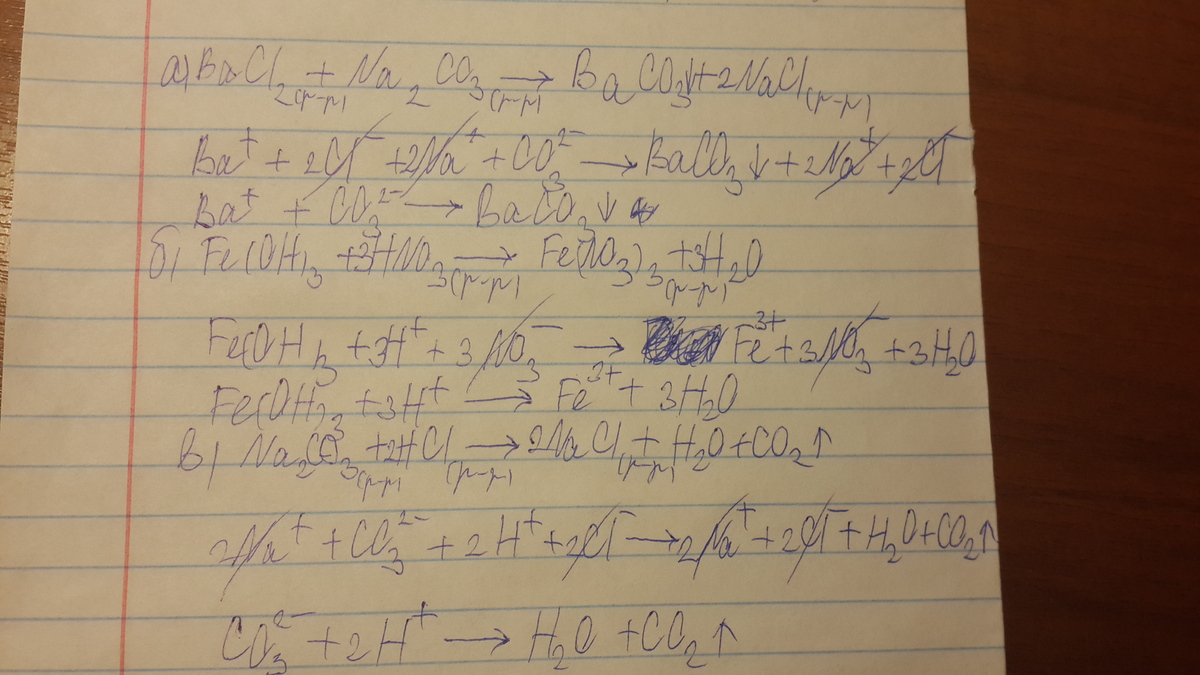 а) BaCl₂(р-р) + Na₂CO₃(р-р) → BaCO₃↓ + 2NaCl(р-р)
Ba⁺ + 2Cl⁻ + 2Na⁺ + CO₃²⁻ → BaCO₃↓ + 2Na⁺ + 2Cl⁻
Ba⁺ + CO₃²⁻ → BaCO₃↓
б) Fe(OH)₃ + 3HNO₃(р-р) → Fe(NO₃)₃(р-р) + 3H₂O
Fe(OH)₃ + 3H⁺ + 3NO₃⁻ → Fe³⁺ + 3NO₃⁻ + 3H₂O
Fe(OH)₃ + 3H⁺ → Fe³⁺ + 3H₂O
в) Na₂CO₃(р-р) + 2HCl(р-р) → 2NaCl(р-р) + H₂O + CO₂↑
2Na⁺ + CO₃²⁻ + 2H⁺ + 2Cl⁻ → 2Na⁺ + 2Cl⁻ + H₂O + CO₂↑
CO₃²⁻ + 2H⁺ → H₂O + CO₂↑